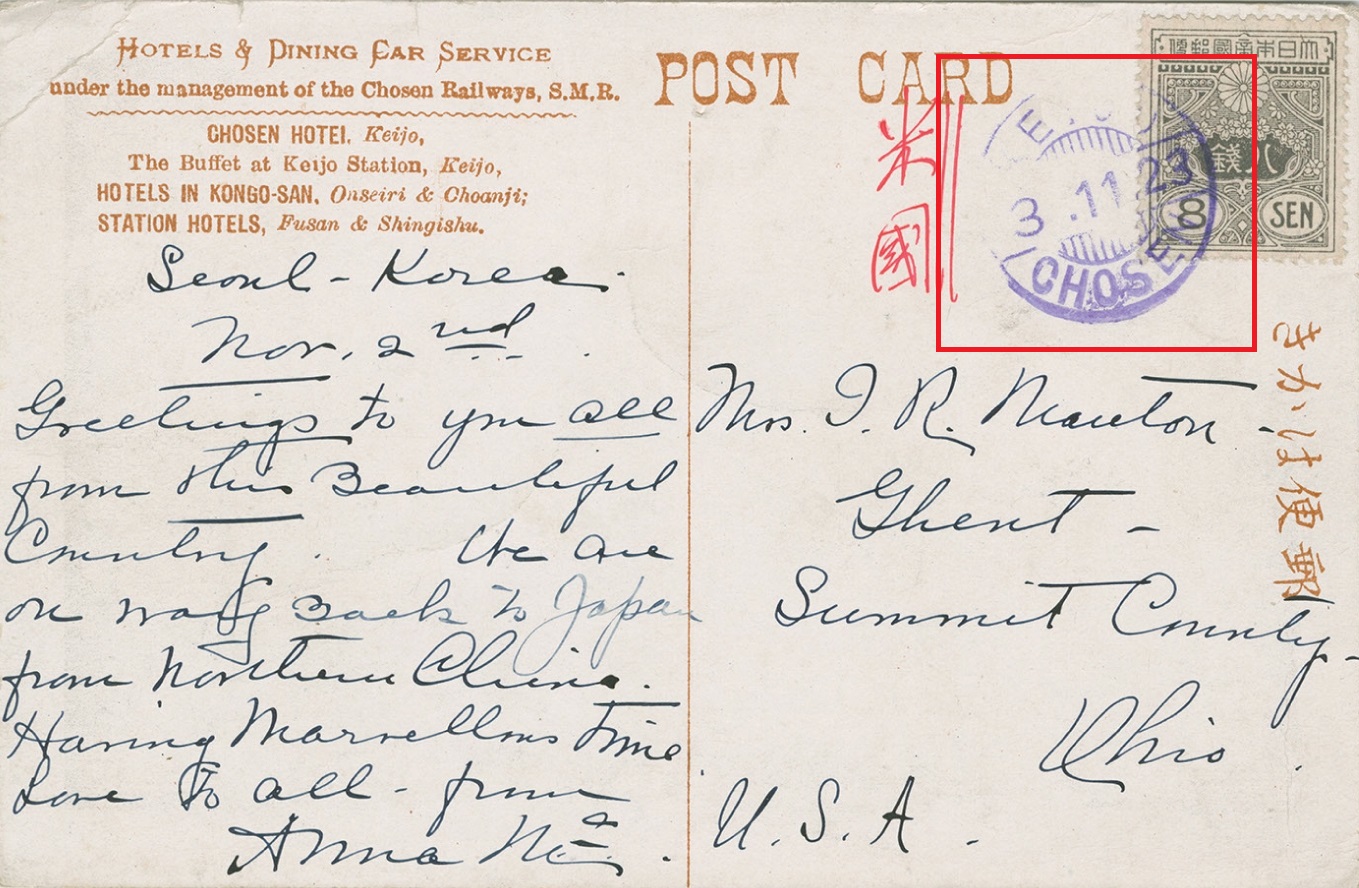 HOTELS & DINING CAR SERVICE
under the management of the Chosen Railways, S.M.R.
CHOSEN HOTEL, Keijo,
The Buffet at Keijo Station, Keijo,
HOTELS IN KONGO-SAN, Onseiri & Choanji;
STATION HOTELS, Fusan & Shingishu.
POST CARD
米國
大日本帝國郵便
八錢
8 SEN
3.11.23
CHOSEN
きかは便郵
Seoul - Korea.
Nov. 2nd
Greetings to you all
from this Beautiful
Country. We are
on way Back to Japan
from Northern China.
Having Marvellous Time
Love to all - from
Anna
Mrs. I. R. Manton -
Ghent -
Summit County -
Ohio
U.S.A.